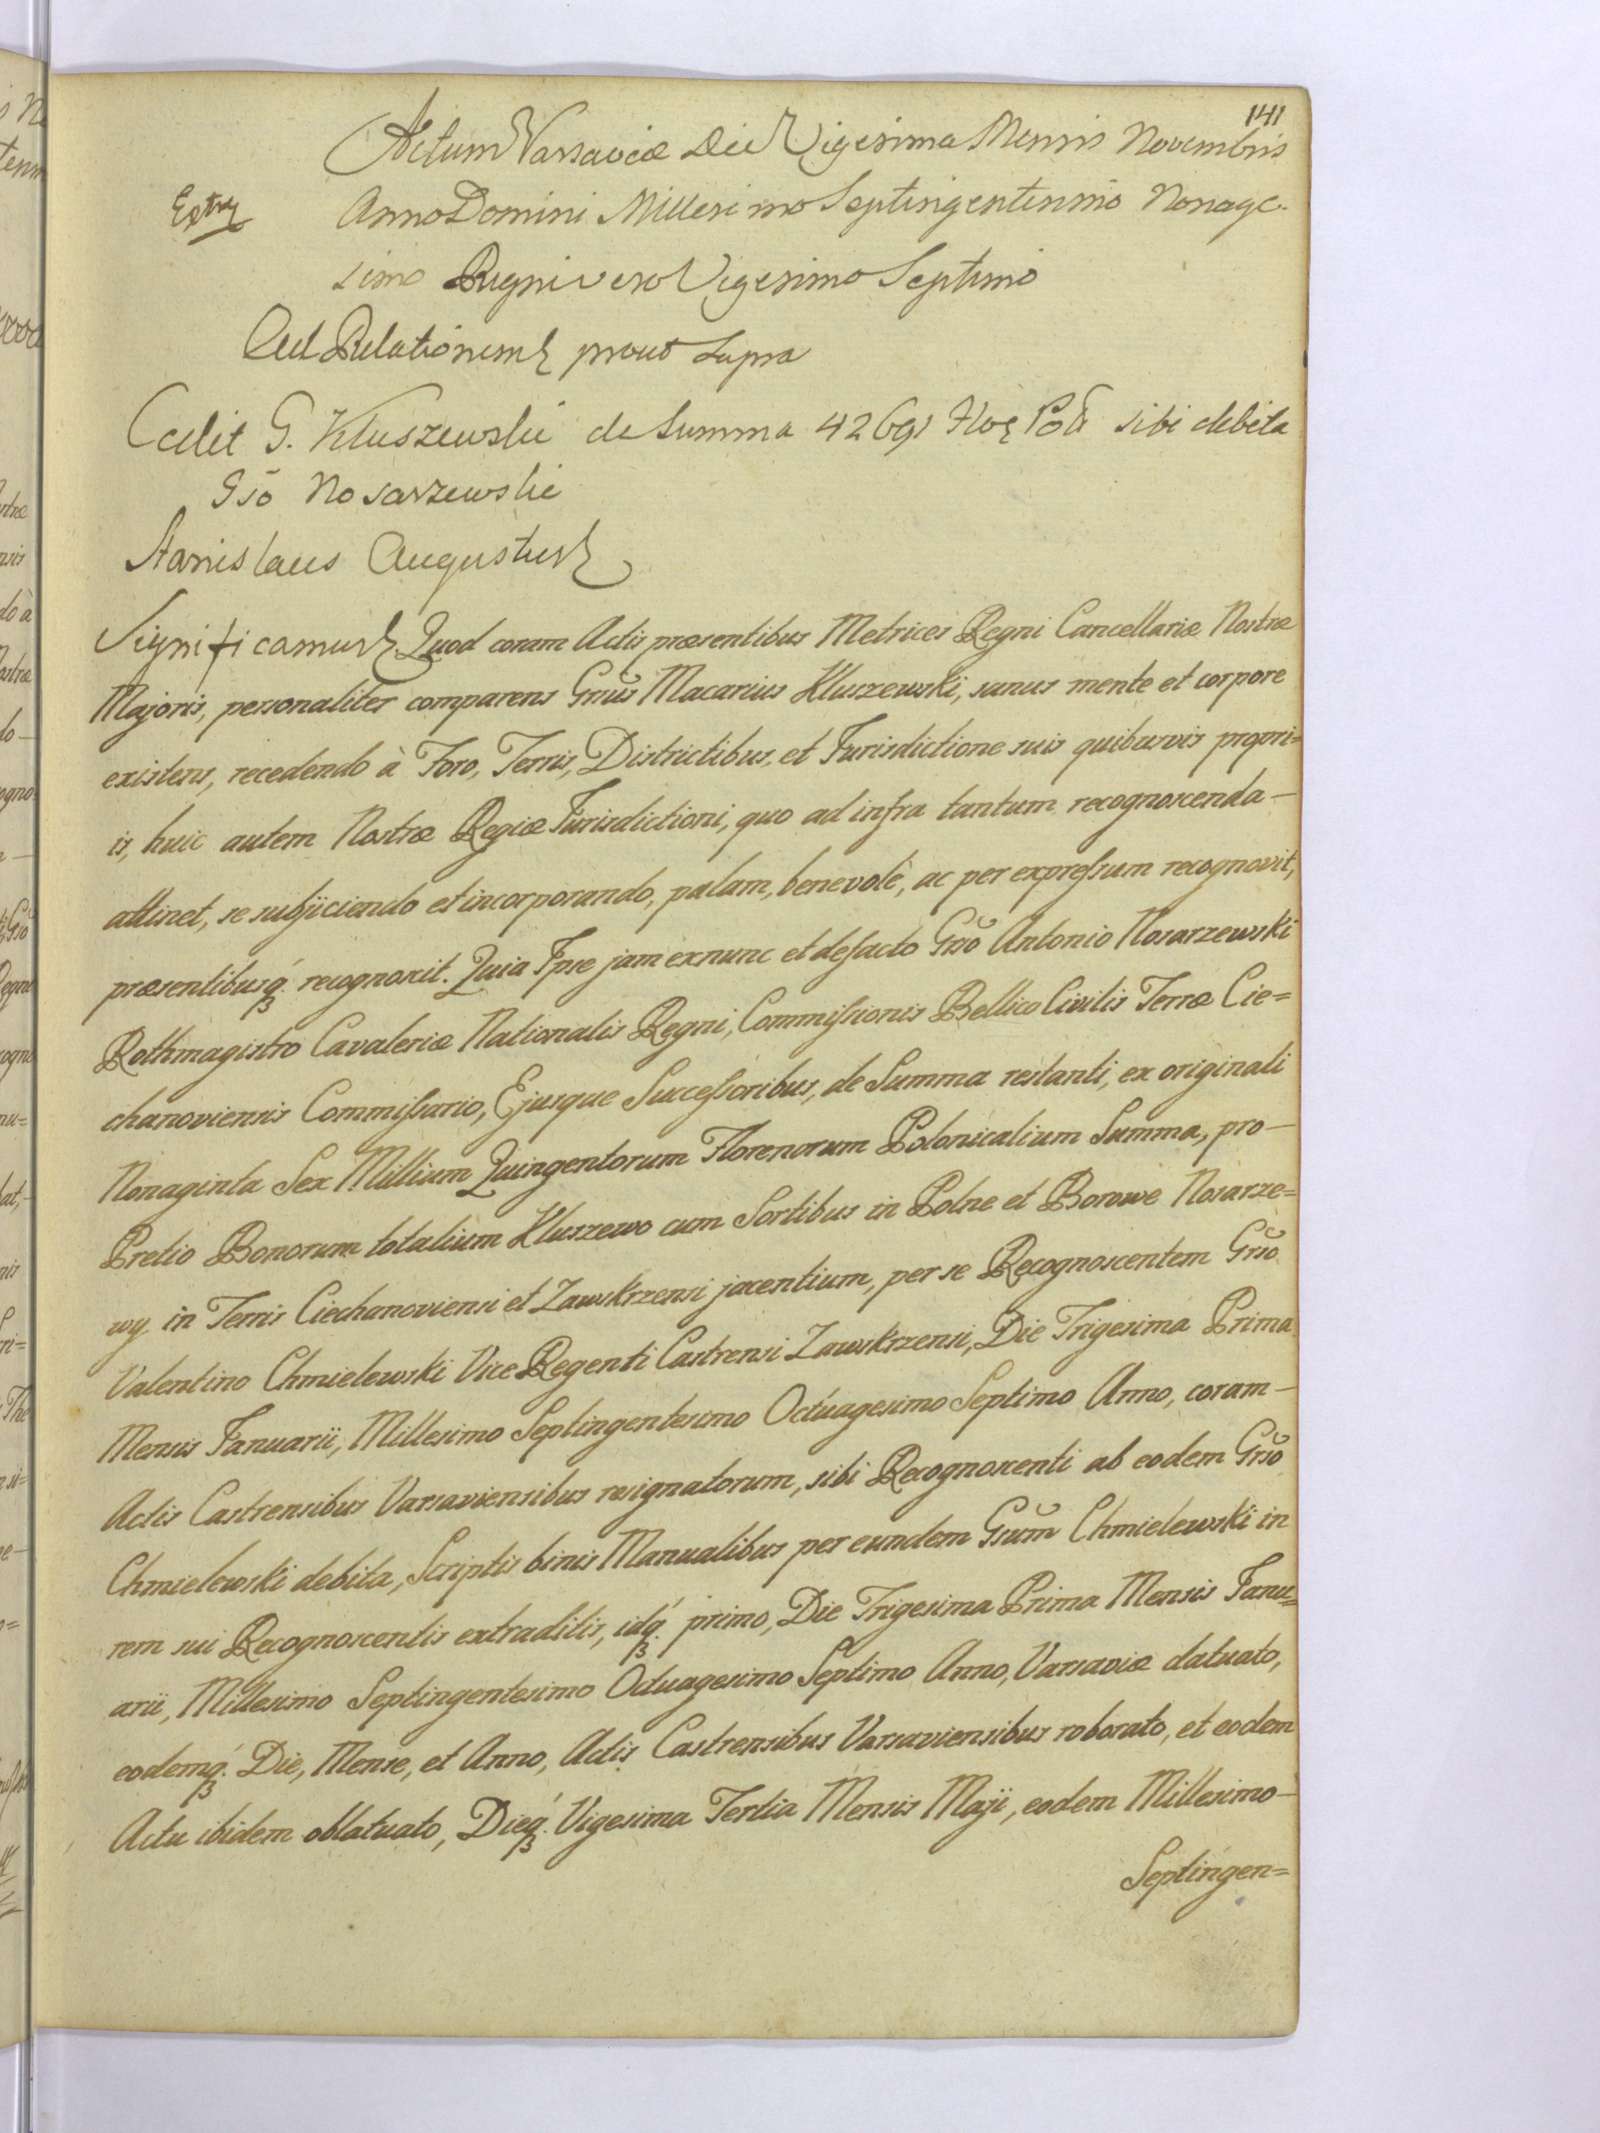 141
Actum Varsaviæ Die Vigesima Mensis Novembris
Extr
Anno Domini Millesimo Septingentesimo Nonage-
simo Regni vero Vigesimo Septimo
Ad Relationem prout supra
Cedit G. Kluszewski de Summa Flor Pol sibi debita
Gso Nosarzewski
Stanislaus Augustus
Significamus Quod coram Actis præsentibus Metrices Regni Cancellariæ Nostræ
Majoris, personaliter comparens Grsus Macarius Kluszewski, sanus mente et corpore
existens, recedendo à Foro, Terris, Districtibus, et Jurisdictione suis quibusvis propri=
is, huic autem Nostræ Regiæ Jurisdictioni, quo ad infra tantum recognoscenda—
attinet, se subjiciendo et incorporando, palam, benevolè, ac per expressum recognovit,
præsentibusq́. recognoscit. Quia Ipse jam exnunc et defacto Grso Antonio Nosarzewski
Rothmagistro Cavaleriæ Nationalis Regni, Commissionis Bellico Civilis Terræ Cie=
chanoviensis Commissario, Ejusque Successoribus, de Summa restanti, ex originali
Nonaginta Sex Millium Quingentorum Florenorum Polonicalium Summa, pro—
Pretio Bonorum totalium Kluszewo cum Sortibus in Polne et Borowe Nosarze=
wy in Terris Ciechanoviensi et Zawskrzensi jacentium, per se Recognoscentem Grso
Valentino Chmielewski Vice Regenti Castrensi Zawskrzensi, Die Trigesima Prima
Mensis Januarii, Millesimo Septingentesimo Octuagesimo Septimo Anno, coram—
Actis Castrensibus Varsaviensibus resignatorum, sibi Recognoscenti ab eodem Grso
Chmielewski debita, Scriptis binis Manualibus per eundem Gsum Chmielewski in
rem sui Recognoscentis extraditis, idq́. primo, Die Trigesima Prima Mensis Janu=
arii, Millesimo Septingentesimo Octuagesimo Septimo Anno, Varsaviæ datuato,
eodemq́. Die, Mense, et Anno, Actis Castrensibus Varsaviensibus roborato, et eodem
Actu ibidem oblatuato, Dieq́. Vigesima Tertia Mensis Maji, eodem Millesimo—
Septingen=